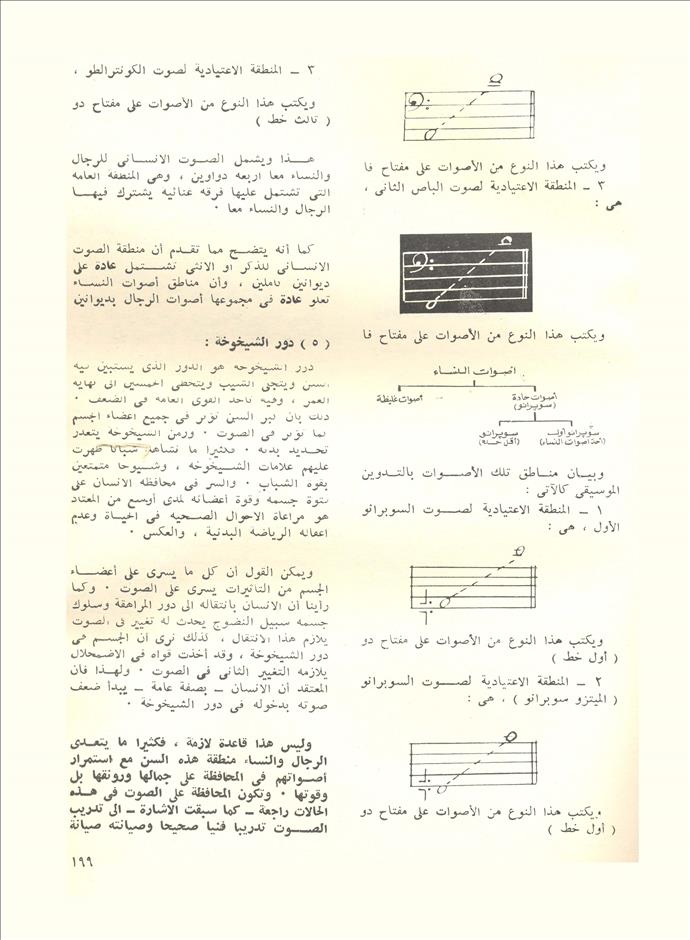 ويكتب هذا النوع من الأصوات على مفتاح فا
٣ ــ المنطقة الاعتيادية لصوت الباص الثانى ،
هى :
ويكتب هذا النوع من الأصوات على مفتاح فا
أصوات النساء
أصوات حادة
(سوبرانو)
أصوات غليظة
سوبرانو أول
(أحد أصوات النساء)
سوبرانو
(أقل حدة)
وبيان مناطق تلك الأصوات بالتدوين
الموسيقى كالآتى :
١ ــ المنطقة الاعتيادية لصوت السوبرانو
الأول ، هى :
ويكتب هذا النوع من الأصوات على مفتاح دو
( أول خط )
٢ ــ المنطقة الاعتيادية لصوت السوبرانو
( الميتزو سوبرانو ) ، هى :
ويكتب هذا النوع من الأصوات على مفتاح دو
( أول خط )
٣ ــ المنطقة الاعتيادية لصوت الكونترالطو ،
ويكتب هذا النوع من الأصوات على مفتاح دو
( ثالث خط )
هذا ويشمل الصوت الانسانى للرجال
والنساء معا أربعة دواوين ، وهى المنطقة العامة
التى تشتمل عليها فرقة غنائية يشترك فيها
الرجال والنساء معا ٠
كما أنه يتضح مما تقدم أن منطقة الصوت
الانسانى للذكر أو الانثى تشتمل عادة على
ديوانين كاملين ، وأن مناطق أصوات النساء
تعلو عادة فى مجموعها أصوات الرجال بديوانين
( ٥ ) دور الشيخوخة :
دور الشيخوخة هو الدور الذى يستبين فيه
السن ويتجلى الشيب ويتخطى الخمسين الى نهاية
العمر ، وفيه تأخذ القوى العامة فى الضعف ٠
ذلك بأن كبر السن تؤثر فى جميع أعضاء الجسم
كما تؤثر فى الصوت ٠ وزمن الشيخوخة يتعذر
تحديد بدئه ٠ فكثيرا ما نشاهد شبانا ظهرت
عليهم علامات الشيخوخة ، وشيوخا متمتعين
بقوة الشباب ٠ والسر فى محافظة الانسان على
قوة جسمه وقوة أعضائه لمدى أوسع من المعتاد
هو مراعاة الاحوال الصحية فى الحياة وعدم
اغفاله الرياضة البدنية ، والعكس ٠
ويمكن القول أن كل ما يسرى على أعضاء
الجسم من التأثيرات يسرى على الصوت ٠ وكما
رأينا أن الانسان بانتقاله الى دور المراهقة وسلوك
جسمه سبيل النضوج يحدث له تغيير فى الصوت
يلازم هذا الانتقال ، كذلك نرى أن الجسم فى
دور الشيخوخة ، وقد أخذت قواه فى الاضمحلال
يلازمه التغيير الثانى فى الصوت ٠ ولهذا فان
المعتقد أن الانسان ــ بصفة عامة ــ يبدأ ضعف
صوته بدخوله فى دور الشيخوخة ٠
وليس هذا قاعدة لازمة ، فكثيرا ما يتعدى
الرجال والنساء منطقة هذه السن مع استمرار
أصواتهم فى المحافظة على جمالها ورونقها بل
وقوتها ٠ وتكون المحافظة على الصوت فى هذه
الحالات راجعة ــ كما سبقت الاشارة ــ الى تدريب
الصوت تدريبا فنيا صحيحا وصيانته صيانة
١٩٩